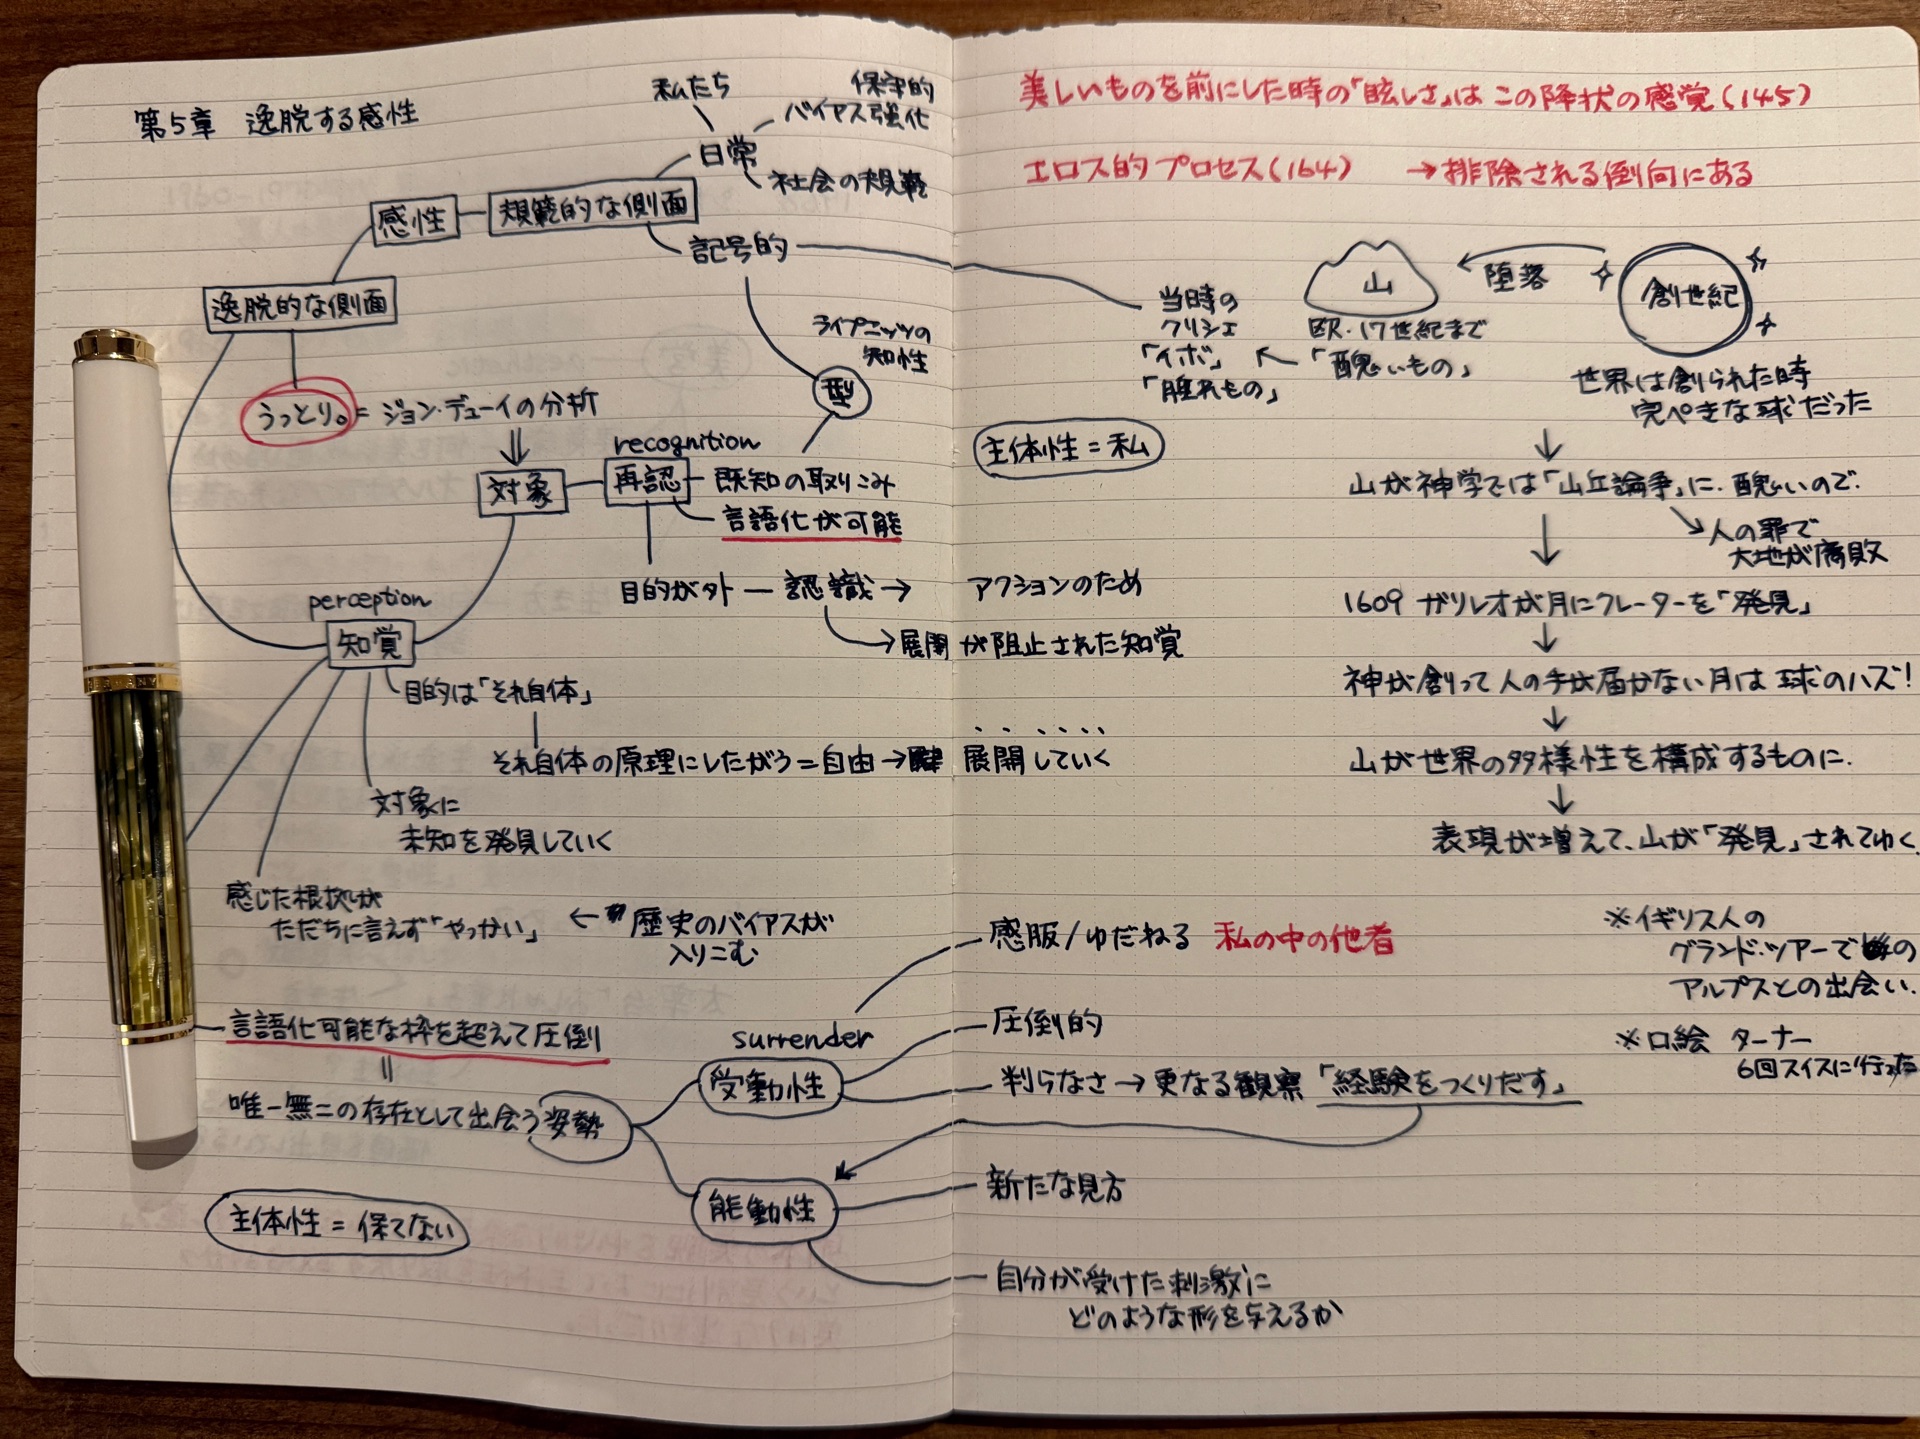 第5章 逸脱する感性
私たち
保守的
バイアス強化
日常
社会の規範
感性
規範的な側面
記号的
逸脱的な側面
ライプニッツの
知性
型
うっとり。= ジョン・デューイの分析
recognition
対象
再認
既知の取りこみ
言語化が可能
目的が外 — 認識 → アクションのため
→ 展開が阻止された知覚
perception
知覚
目的は「それ自体」
それ自体の原理にしたがう = 自由 → 展開していく
対象に
未知を発見していく
感じた根拠が
ただちに言えず「やっかい」
← 歴史のバイアスが
入りこむ
言語化可能な枠を超えて圧倒
=
唯一無二の存在として出会う姿勢
surrender
受動性
能動性
主体性 = 保てない
美しいものを前にした時の「眩しさ」はこの降状の感覚(145)
エロス的プロセス(164) → 排除される倒向にある
当時の
クリシェ
「イボ」
「腫れもの」
←
山
欧・17世紀まで
「醜いもの」
← 堕落
創世紀
世界は創られた時
完ぺきな球だった
主体性 = 私
↓
山が神学では「山丘論争」に。醜いので。
↘ 人の罪で
大地が腐敗
↓
1609 ガリレオが月にクレーターを「発見」
↓
神が創って人の手が届かない月は球のハズ!
↓
山が世界の多様性を構成するものに。
↓
表現が増えて、山が「発見」されてゆく。
感服/ゆだねる 私の中の他者
圧倒的
判らなさ → 更なる観察「経験をつくりだす」
新たな見方
自分が受けた刺激に
どのような形を与えるか
※イギリス人の
グランド・ツアーでの
アルプスとの出会い.
※口絵 ターナー
6回スイスに行った